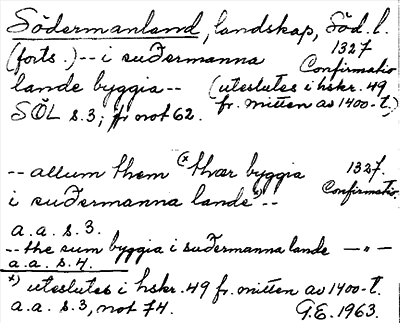 Södermanland, landskap, Söd. l.
(forts.) -- i suðermanna 1327
lande byggia -- Confirmatio
(uteslutes i hskr. 49
SÖL s. 3; fr not 62. fr. mitten av 1400-t.)
-- allum them (x thær byggia 1327.
i suðermanna lande x) -- Confirmatio.
a.a. s. 3.
-- the sum byggia i suðermanna lande — " —
a.a. s. 4.
x) uteslutes i hskr. 49 fr. mitten av 1400-t.
a.a. s. 3, not 74. G.E. 1963.